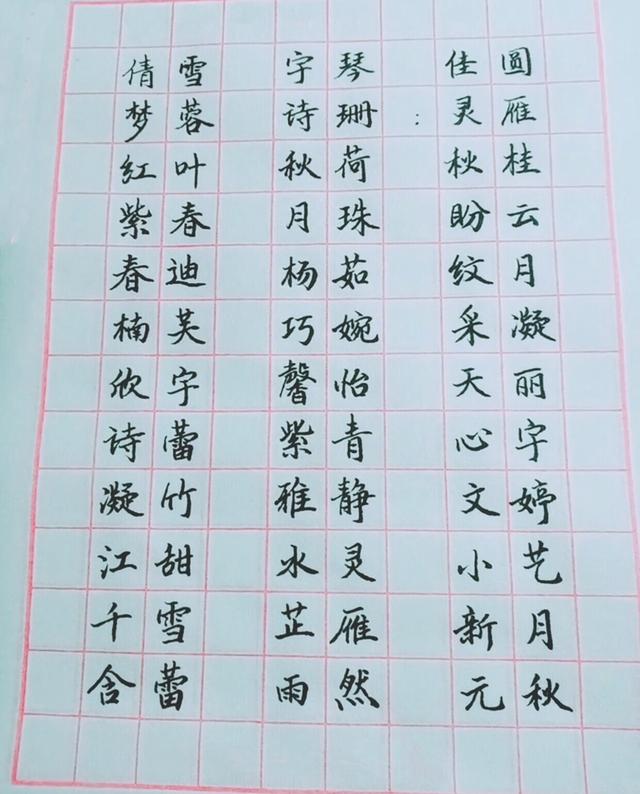 倩雪 宇琴 佳圆
梦蓉 诗珊 : 灵雁
红叶 秋荷 秋桂
紫春 月珠 盼云
春迪 杨茹 纹月
楠芙 巧婉 采凝
欣宇 馨怡 天丽
诗蕾 紫青 心宇
凝竹 雅静 文婷
江甜 水灵 小艺
千雪 芷雁 新月
含蕾 雨然 元秋